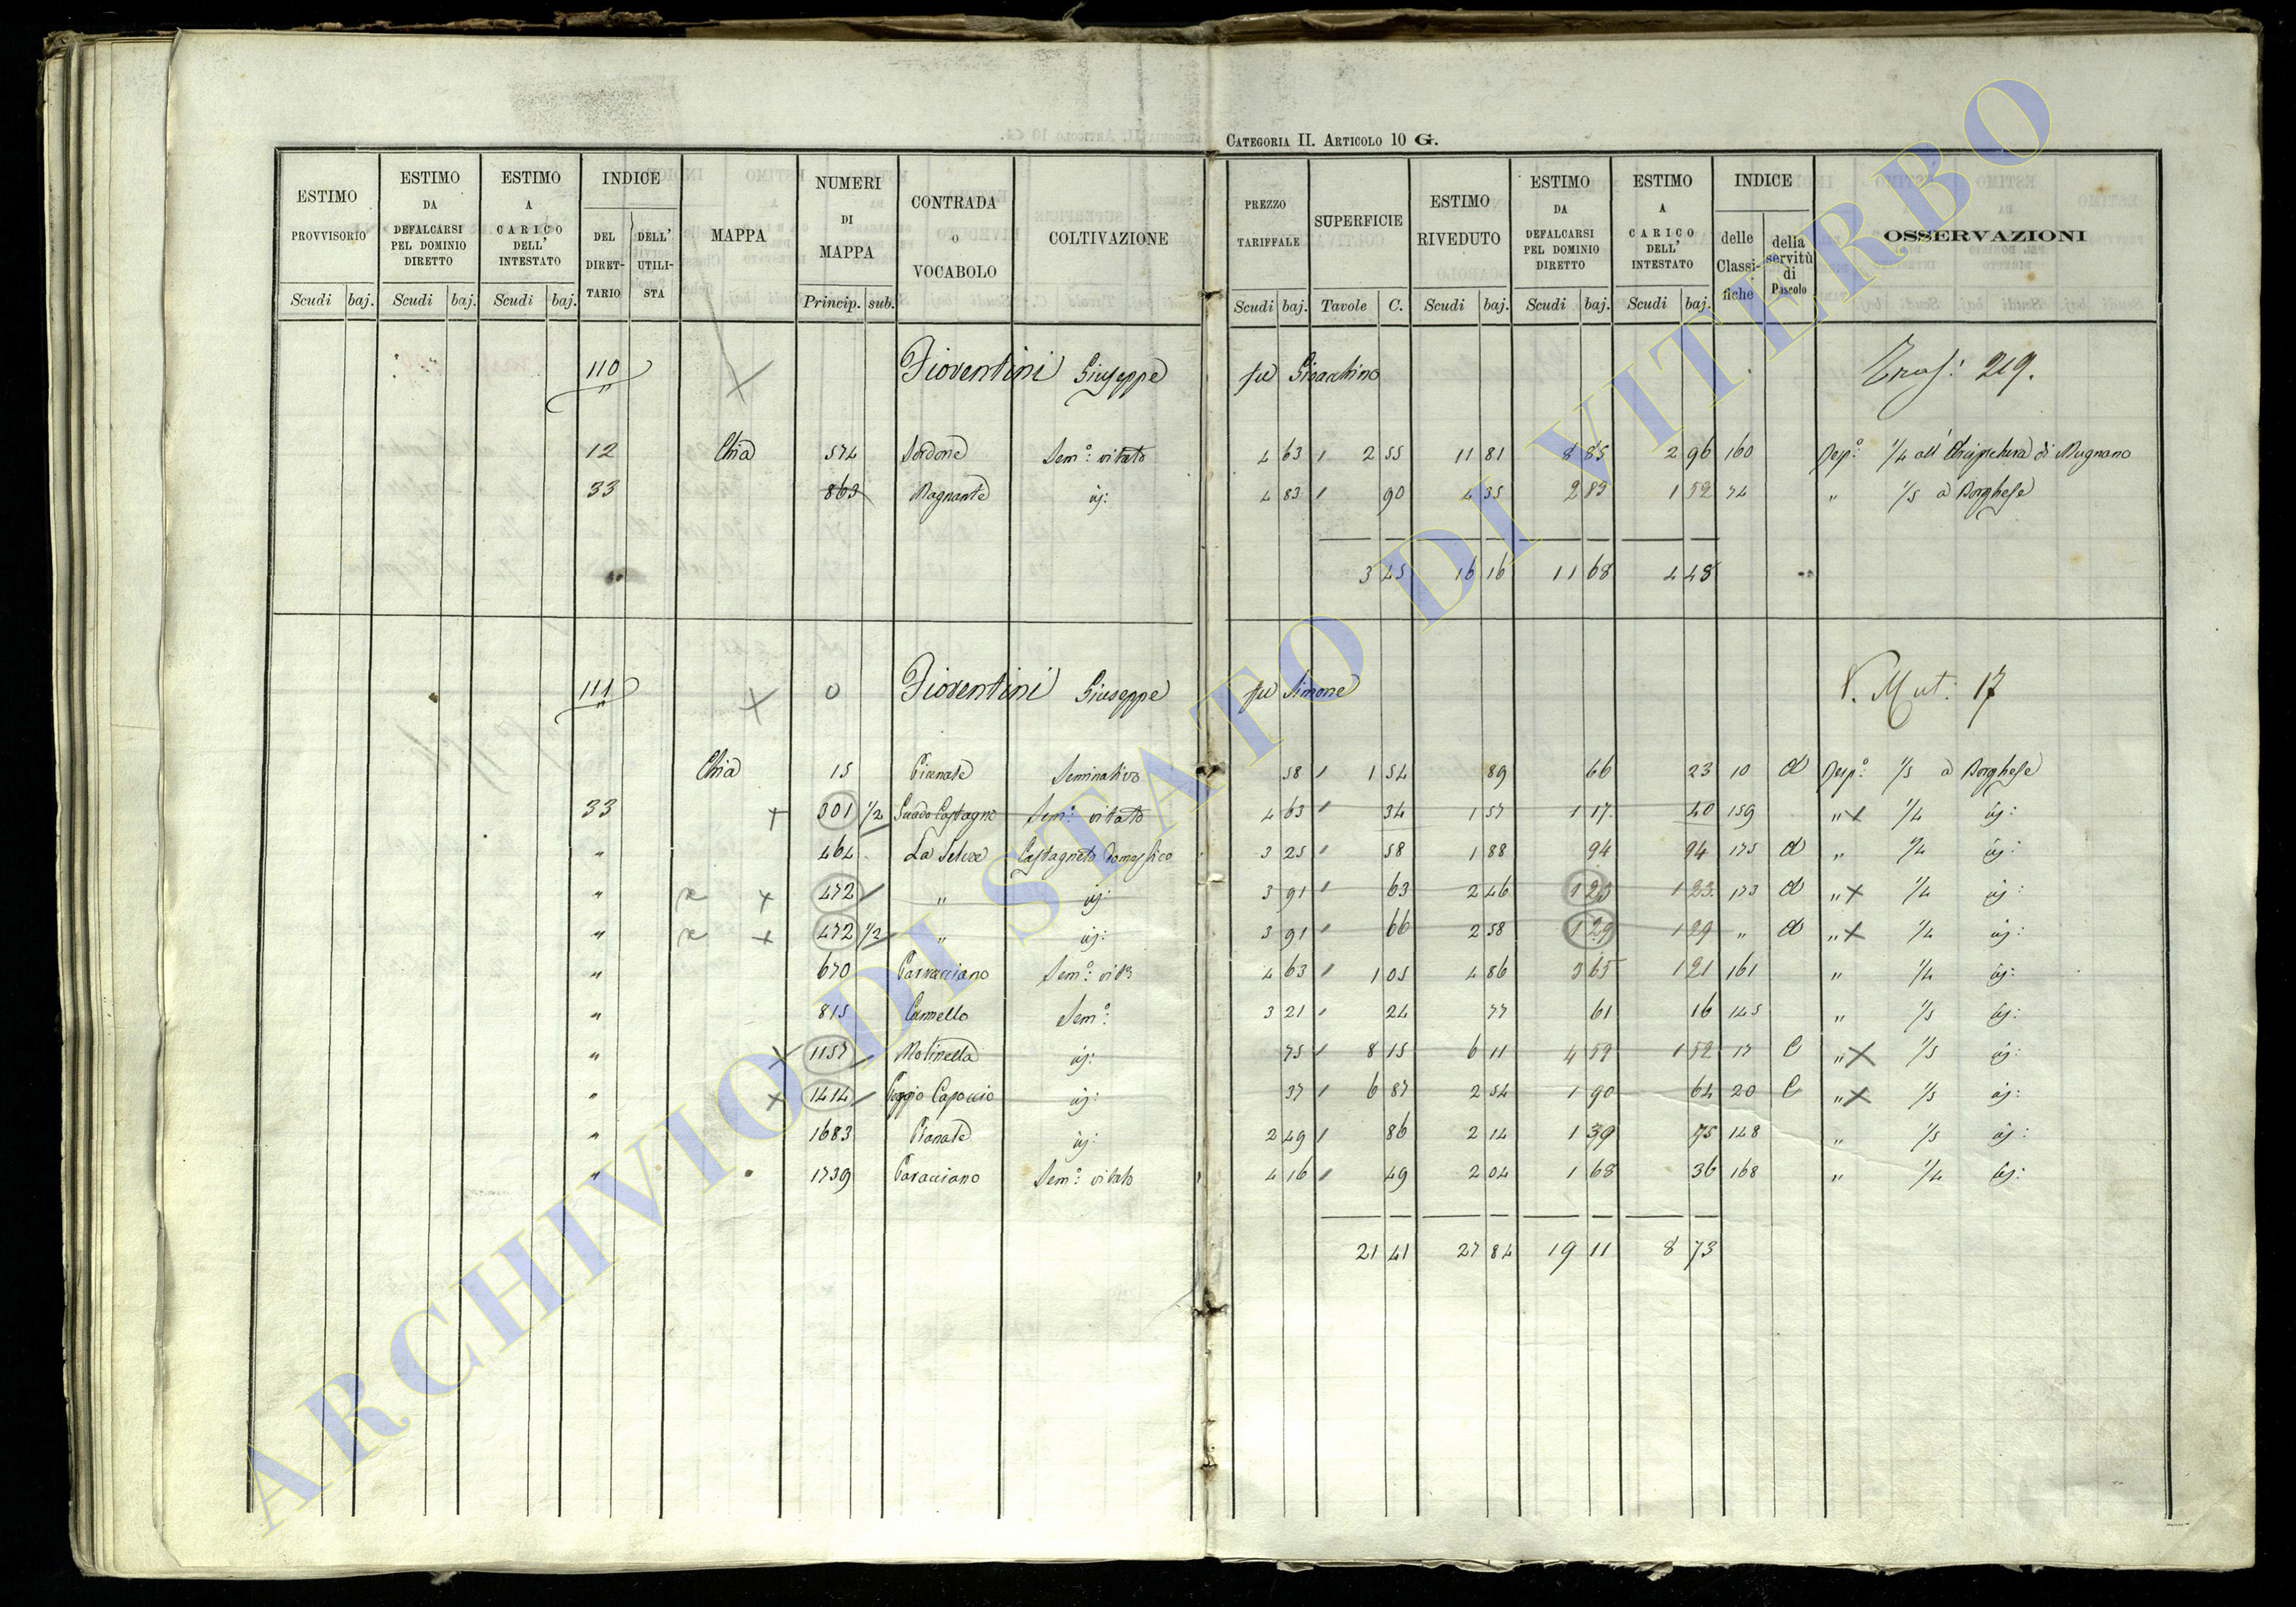 CATEGORIA II. ARTICOLO 10 G.
ESTIMO PROVVISORIO Scudi baj.
ESTIMO DA DEFALCARSI PEL DOMINIO DIRETTO Scudi baj.
ESTIMO A CARICO DELL' INTESTATO Scudi baj.
INDICE DEL DIRET-TARIO DELL' UTILI-STA
MAPPA
NUMERI DI MAPPA Princip. sub.
CONTRADA o VOCABOLO
COLTIVAZIONE
PREZZO TARIFFALE Scudi baj.
SUPERFICIE Tavole C.
ESTIMO RIVEDUTO Scudi baj.
ESTIMO DA DEFALCARSI PEL DOMINIO DIRETTO Scudi baj.
ESTIMO A CARICO DELL' INTESTATO Scudi baj.
INDICE delle Classi-fiche della servitù di Pascolo
OSSERVAZIONI
110 Fiorentini Giuseppe fu Gioacchino 219.
12 Chia 574 Sordone Sem.º vitato 4 63 2 55 11 81 8 85 2 96 160 1/4 all' di Mugnano
33 863 Magnante id: 4 83 90 4 35 2 83 1 52 74 " 1/5 a Borghese
3 45 16 16 11 68 4 48
111 0 Fiorentini Giuseppe fu Simone V. Mut: 17
Chia 15 Seminativo 58 1 54 89 66 23 10 d 1/5 a Borghese
33 x 301 1/2 Guado Castagno Sem.º vitato 4 63 34 1 57 1 17 40 159 " x 1/4 id:
" 464 La Selva Castagneto domestico 3 25 58 1 88 94 94 175 d " 1/4 id:
" x 472 " id: 3 91 63 2 46 1 23 1 23 173 d " x 1/4 id
" x 472 1/2 " id: 3 91 66 2 58 1 29 1 29 " d " x 1/4 id:
" 670 Sem.º 4 63 1 05 4 86 3 65 1 21 161 " 1/4 id:
" 815 Cannello Sem.º 3 21 24 77 61 16 145 " 1/5 id:
" x 1157 Molinella id: 75 8 15 6 11 4 59 1 52 17 C " x 1/5 id:
" x 1414 Poggio Capoccio id: 37 6 87 2 54 1 90 64 20 C " x 1/5 id:
" 1683 Pianate id: 2 49 86 2 14 1 39 75 148 " 1/5 id:
" 1739 Sem.º vitato 4 16 49 2 04 1 68 36 168 " 1/4 id:
21 41 27 84 19 11 8 73
ARCHIVIO DI STATO DI VITERBO